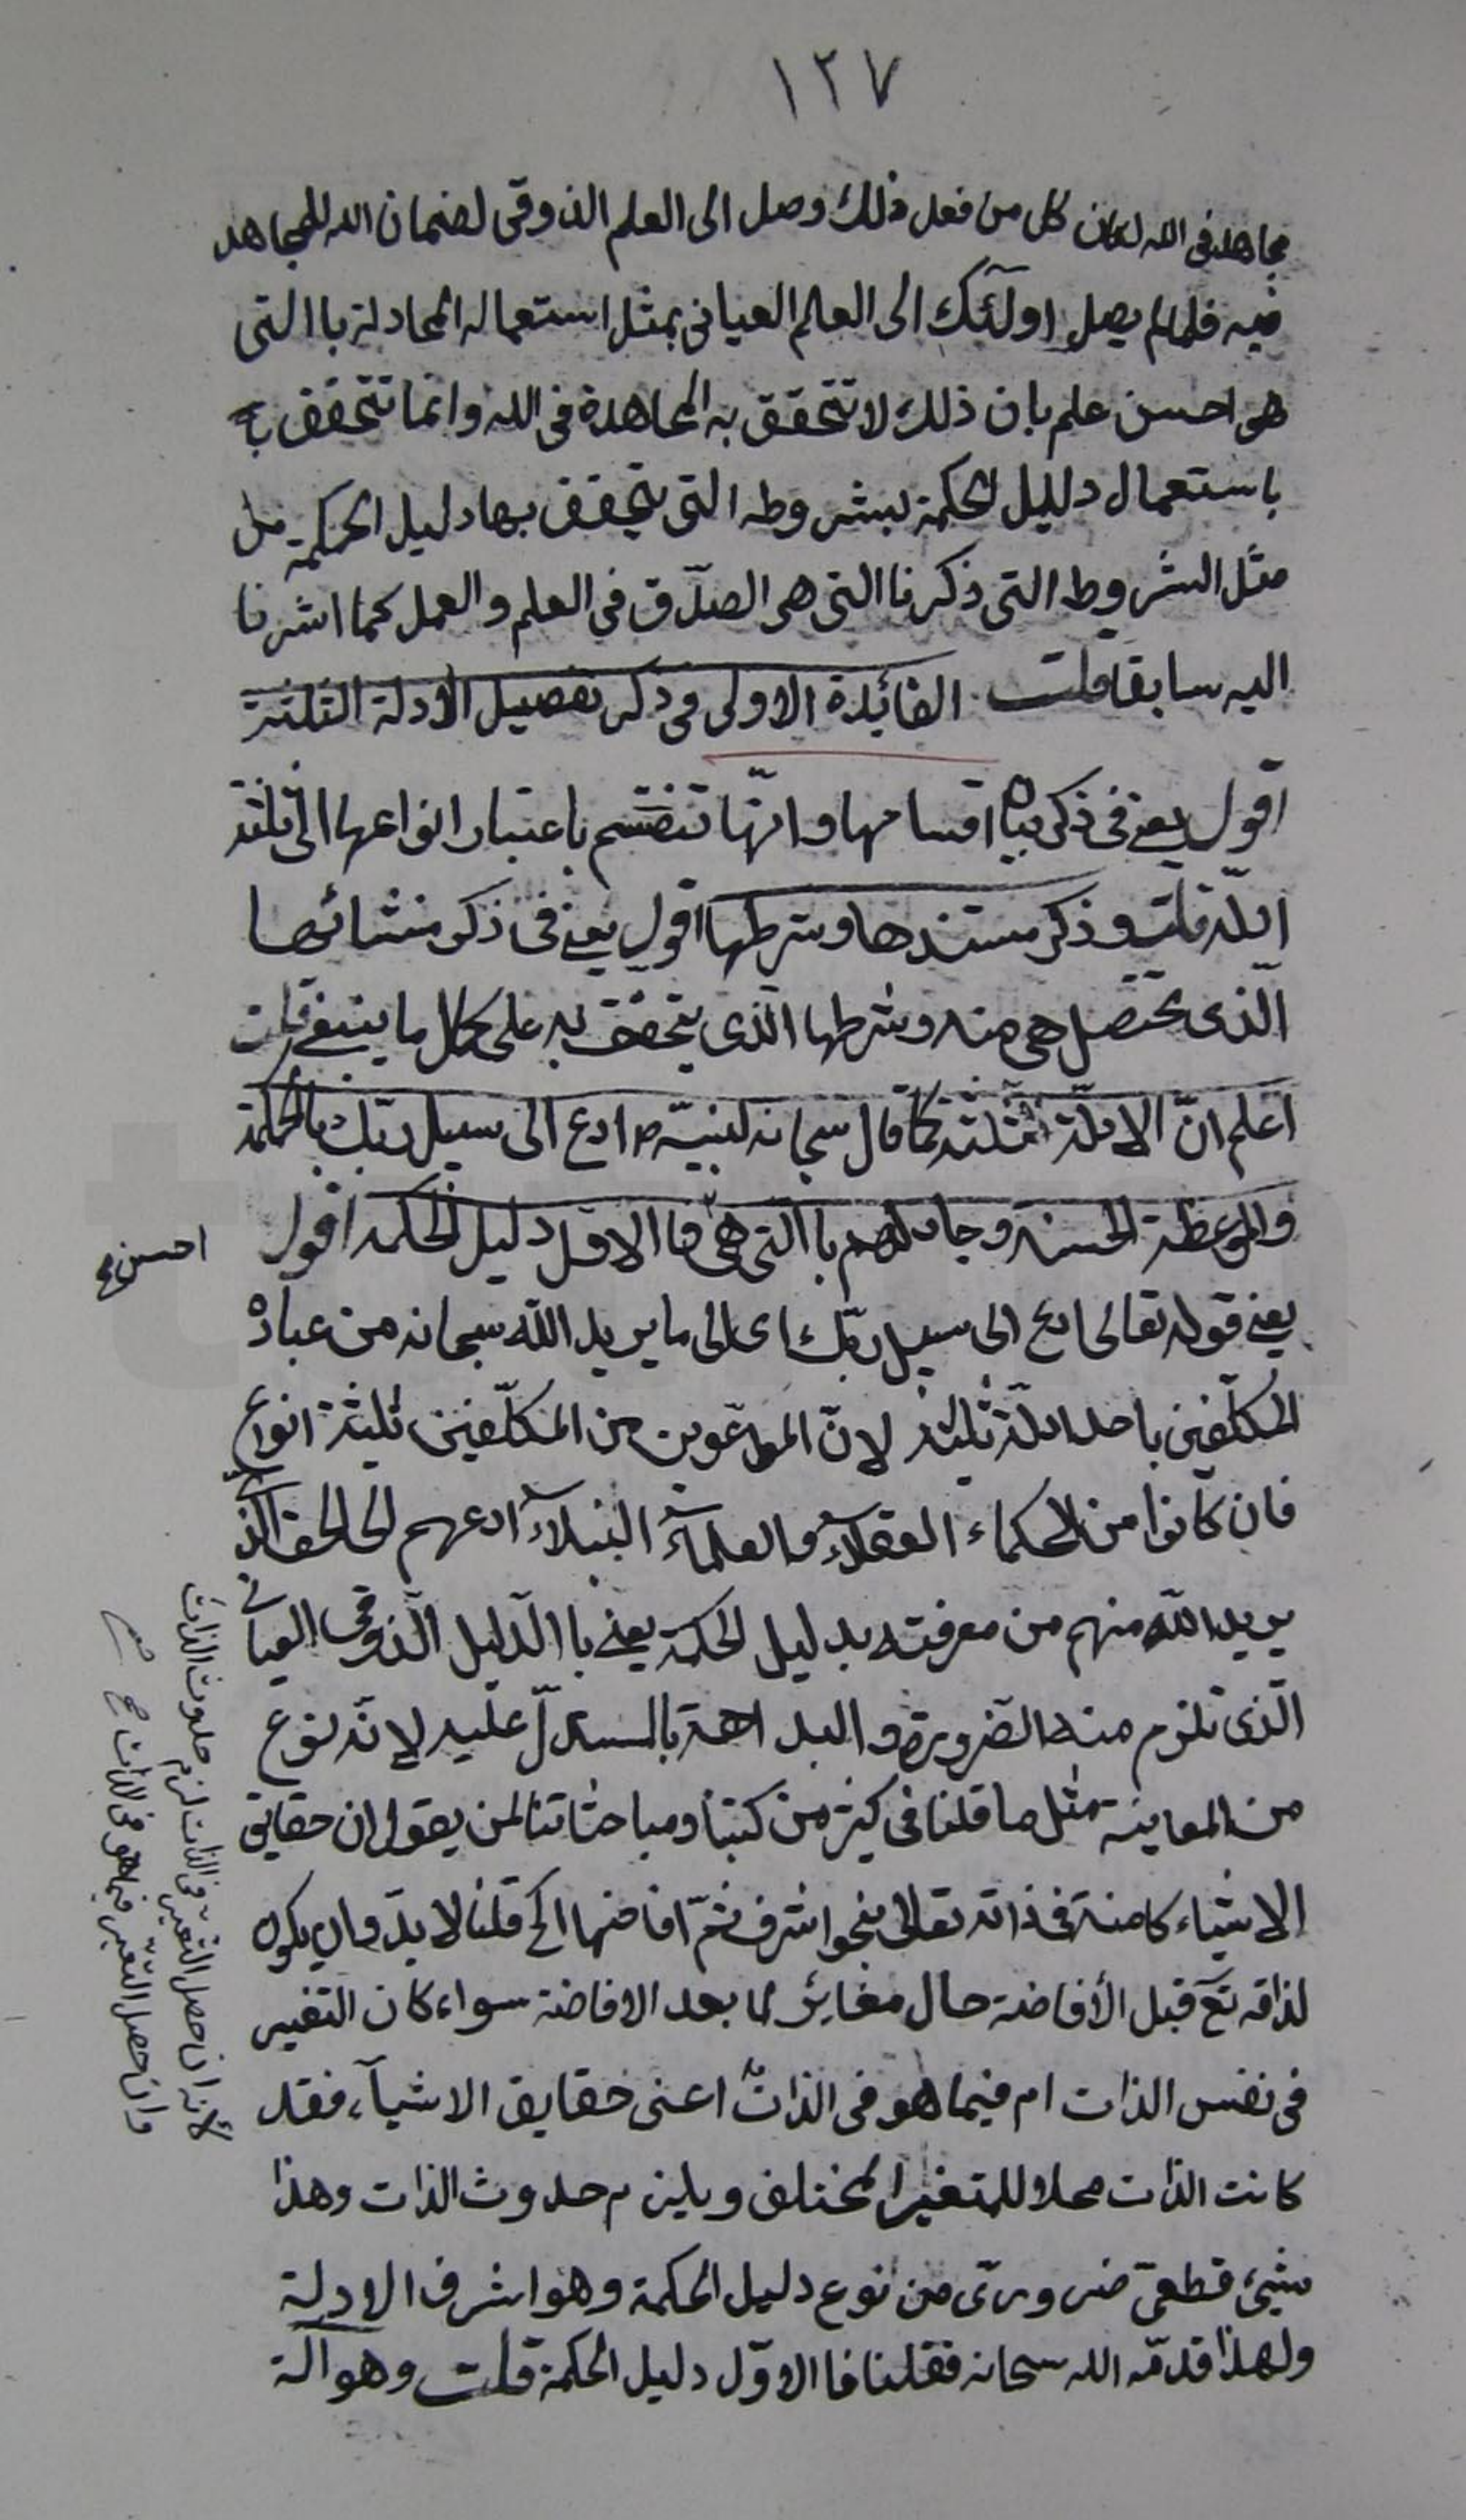 ١٢٧
مجاهد فى الله لكان كل من فعل ذلك وصل الى العلم الذوقى لضمان الله للمجاهد
فيه فلما لم يصل اولآئك الى العالم العيانى بمثل استعماله المجادلة باالتى
هى احسن علم بان ذلك لا تتحقق به المجاهدة فى الله وانما تتحقق با
باستعمال دليل الحكمة بشروطه التى يتحقق بها دليل الحكمة مثل
مثل الشروط التى ذكرنا التى هى الصدق فى العلم والعمل كما اشرنا
اليه سابقا قلت الفائدة الاولى فى ذكر تفصيل الادلة الثلثة
اقول يعنى فى ذكر بيان اقسامها وانّها تنقسم باعتبار انواعها الى ثلثة
ادلّة قلت وذكر مستندها وشرطها اقول يعنى فى ذكر منشائها
الّذى تحصل هى منه وشرطها الّذى يتحقق به على كمال ما ينبغى قلت
اعلم انّ الادلّة ثلثة كما قال سبحانه لنبيّه ص ادع الى سبيل ربّك بالحكمة
والموعظة الحسنة وجادلهم باالتى هى فالاوّل دليل الحكمة اقول
احسن صح
يعنى قوله تعالى ادع الى سبيل ربّك اى الى ما يريد اللّه سبحانه من عباده
المكلّفين باحد ادلّة ثلثة لانّ المدعوين من المكلّفين ثلثة انواع
فان كانوا من الحكماء العقلآء والعلمآء النبلآء ادعهم الى الحق الّذى
يريد اللّه منهم من معرفته بدليل الحكمة يعنى باالدّليل الذّوقى العيانى
الّذى تلزم منه الضرورة والبداهة بالمستدلّ عليه لانّه نوع
من المعاينة مثل ما قلنا فى كثير من كتبنا ومباحثاتنا لمن يقول ان حقايق
الاشياء كامنة فى ذاته تعالى بنحو اشرف ثمّ افاضها الخ قلنا لا بدّ وان يكون
لذاته تع قبل الأفاضة حال مغاير لما بعد الافاضة سواء كان التغير
فى نفس الذات ام فيما هو فى الذات اعنى حقايق الاشيآء، فقد
كانت الذات محلا للمتغير المختلف ويلزم حدوث الذات وهذا
شيئ قطعىّ ضرورىّ من نوع دليل الحكمة وهو اشرف الادلة
ولهذا قدمّه الله سبحانه فقلنا فا الاوّل دليل الحكمة قلت وهو آلة
لانّه ان حصل التغيّر فى الذات لزم حدوث الذات
وان حصل التغيّر فيما هو فى الذات